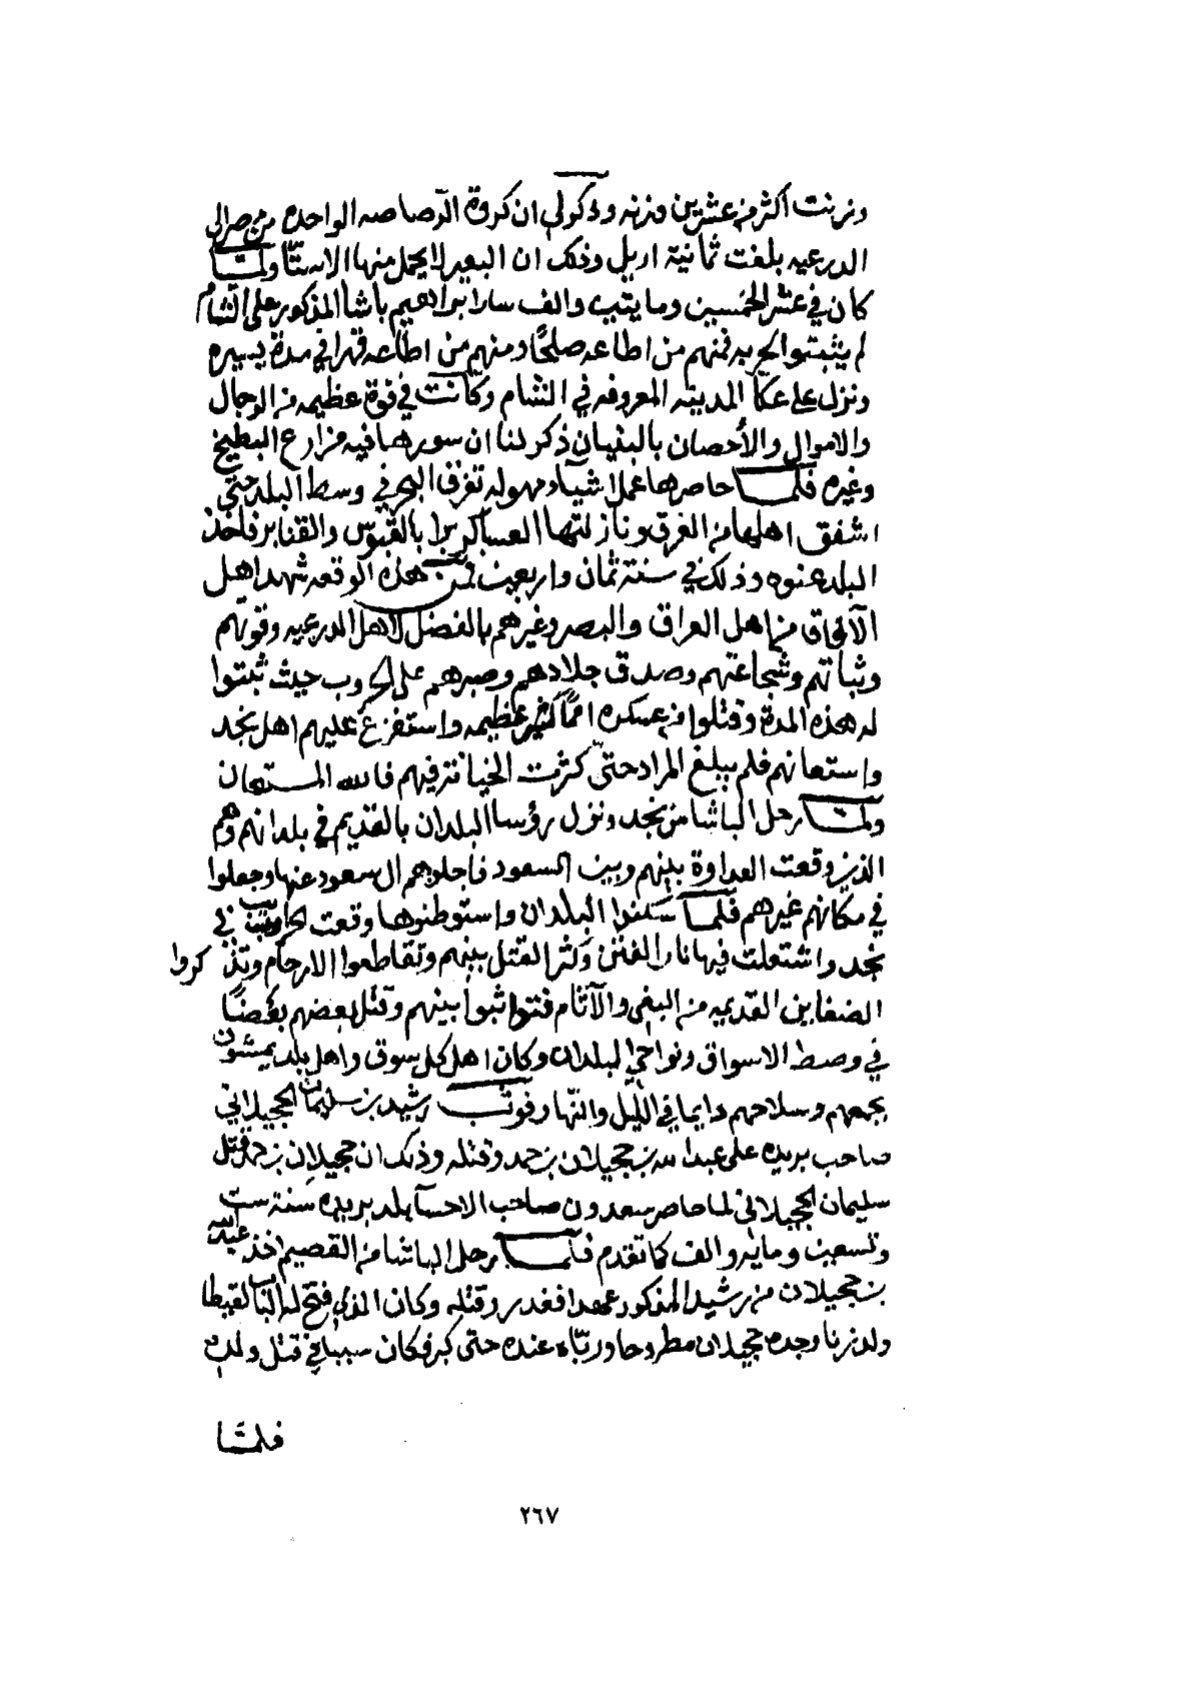 وزنت اكثر من عشرين وزنه وذكر لي ان كروة الرصاصه الواحده من مصر الى
الدرعيه بلغت ثمانية اريل وذلك ان البعير لا يحمل منها الا ستا ولما
كان في عشر الخمسين ومايتين والف سار ابراهيم باشا المذكور على الشام
لم يثبتوا لحربه فمنهم من اطاعه صلحًا ومنهم من اطاعه قهرا في مدة يسيره
ونزل على عكا المدينه المعروفه في الشام وكانت في قوة عظيمه من الرجال
والاموال والأحصان بالبنيان ذكر لنا ان سورها فيه مزارع البطيخ
وغيره فلما حاصرها عمل اشيآء مهوله تغرق البحر في وسط البلد حتى
اشفق اهلها من الغرق ونازلتها العساكر برا بالقبوس والقنابر فاخذ
البلد عنوه وذلك في سنة ثمان واربعين فمن هذه الوقعه شهد اهل
الآفاق من اهل العراق والبصر وغيرهم بالفضل لاهل الدرعيه وقوتهم
وثباتهم وشجاعتهم وصدق جلادهم وصبرهم على الحروب حيث ثبتوا
له هذه المدة وقتلوا من عسكره امما كثير عظيمه واستفزع عليهم اهل نجد
واستعانهم فلم يبلغ المراد حتى كثرت الخيانة فيهم فالله المستعان
ولما رحل الباشا من نجد ونزل رؤسا البلدان بالقديم في بلدانهم وهم
الذين وقعت العداوة بينهم وبين السعود فاجلوهم ال سعود عنها وجعلوا
في مكانهم غيرهم فلما سكنوا البلدان واستوطنوها وقعت الحروب في
نجد واشتعلت فيها نار الفتن وكثر القتل بينهم وتقاطعوا الارحام وتذكروا
الضغاين القديمه من البغي والآثام فتواثبوا بينهم وقتل بعضهم بعضًا
في وصط الاسواق ونواحي البلدان وكان اهل كل سوق واهل بلد يمشون
بجمعهم وسلاحهم دايما في الليل والنهار فوثب رشيد بن سليمان الحجيلاني
صاحب بريده على عبدالله بن حجيلان بن حمد وقتله وذلك ان حجيلان بن حمد قتل
سليمان الحجيلاني لما حاصر سعدون صاحب الاحسآ بلد بريده سنة ست
وتسعين ومايه والف كما تقدم فلما رحل الباشا من القصيم اخذ عبدالله
بن حجيلان من رشيد المذكور عهدا فغدر وقتله وكان الذي فتح له الباب لقيطا
ولد زنا وجده حجيلان مطروحا ورباه عنده حتى كبر فكان سببا في قتل ولده
فلما
٢٦٧